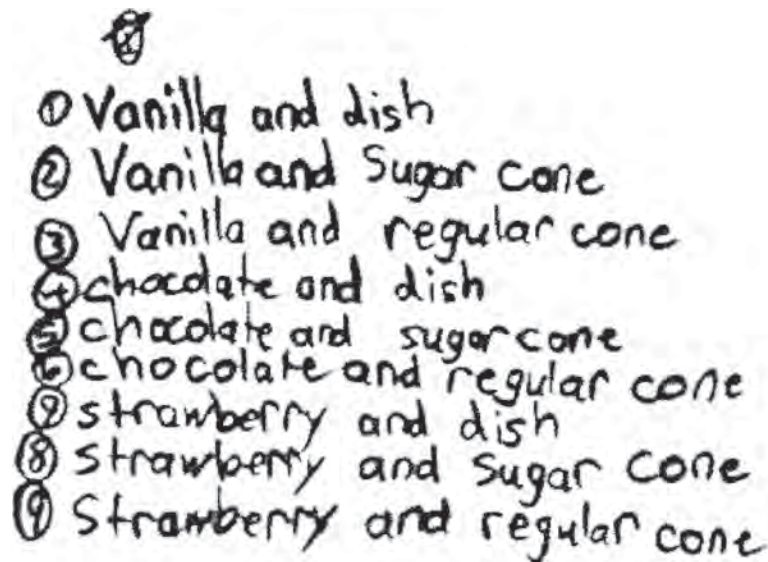 ① Vanilla and dish
② Vanilla and Sugar cone
③ Vanilla and regular cone
④ chocolate and dish
⑤ chocolate and sugar cone
⑥ chocolate and regular cone
⑦ strawberry and dish
⑧ strawberry and sugar cone
⑨ Strawberry and regular cone